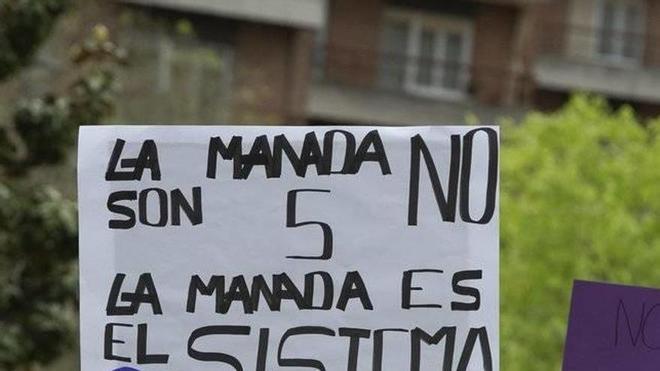 LA MANADA NO
SON 5
LA MANADA ES
EL SISTEMA
NO